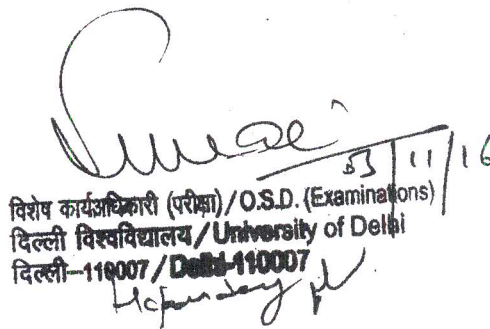 03/11/16
विशेष कार्यअधिकारी (परीक्षा)/O.S.D. (Examinations)
दिल्ली विश्वविद्यालय/University of Delhi
दिल्ली-110007/Delhi-110007